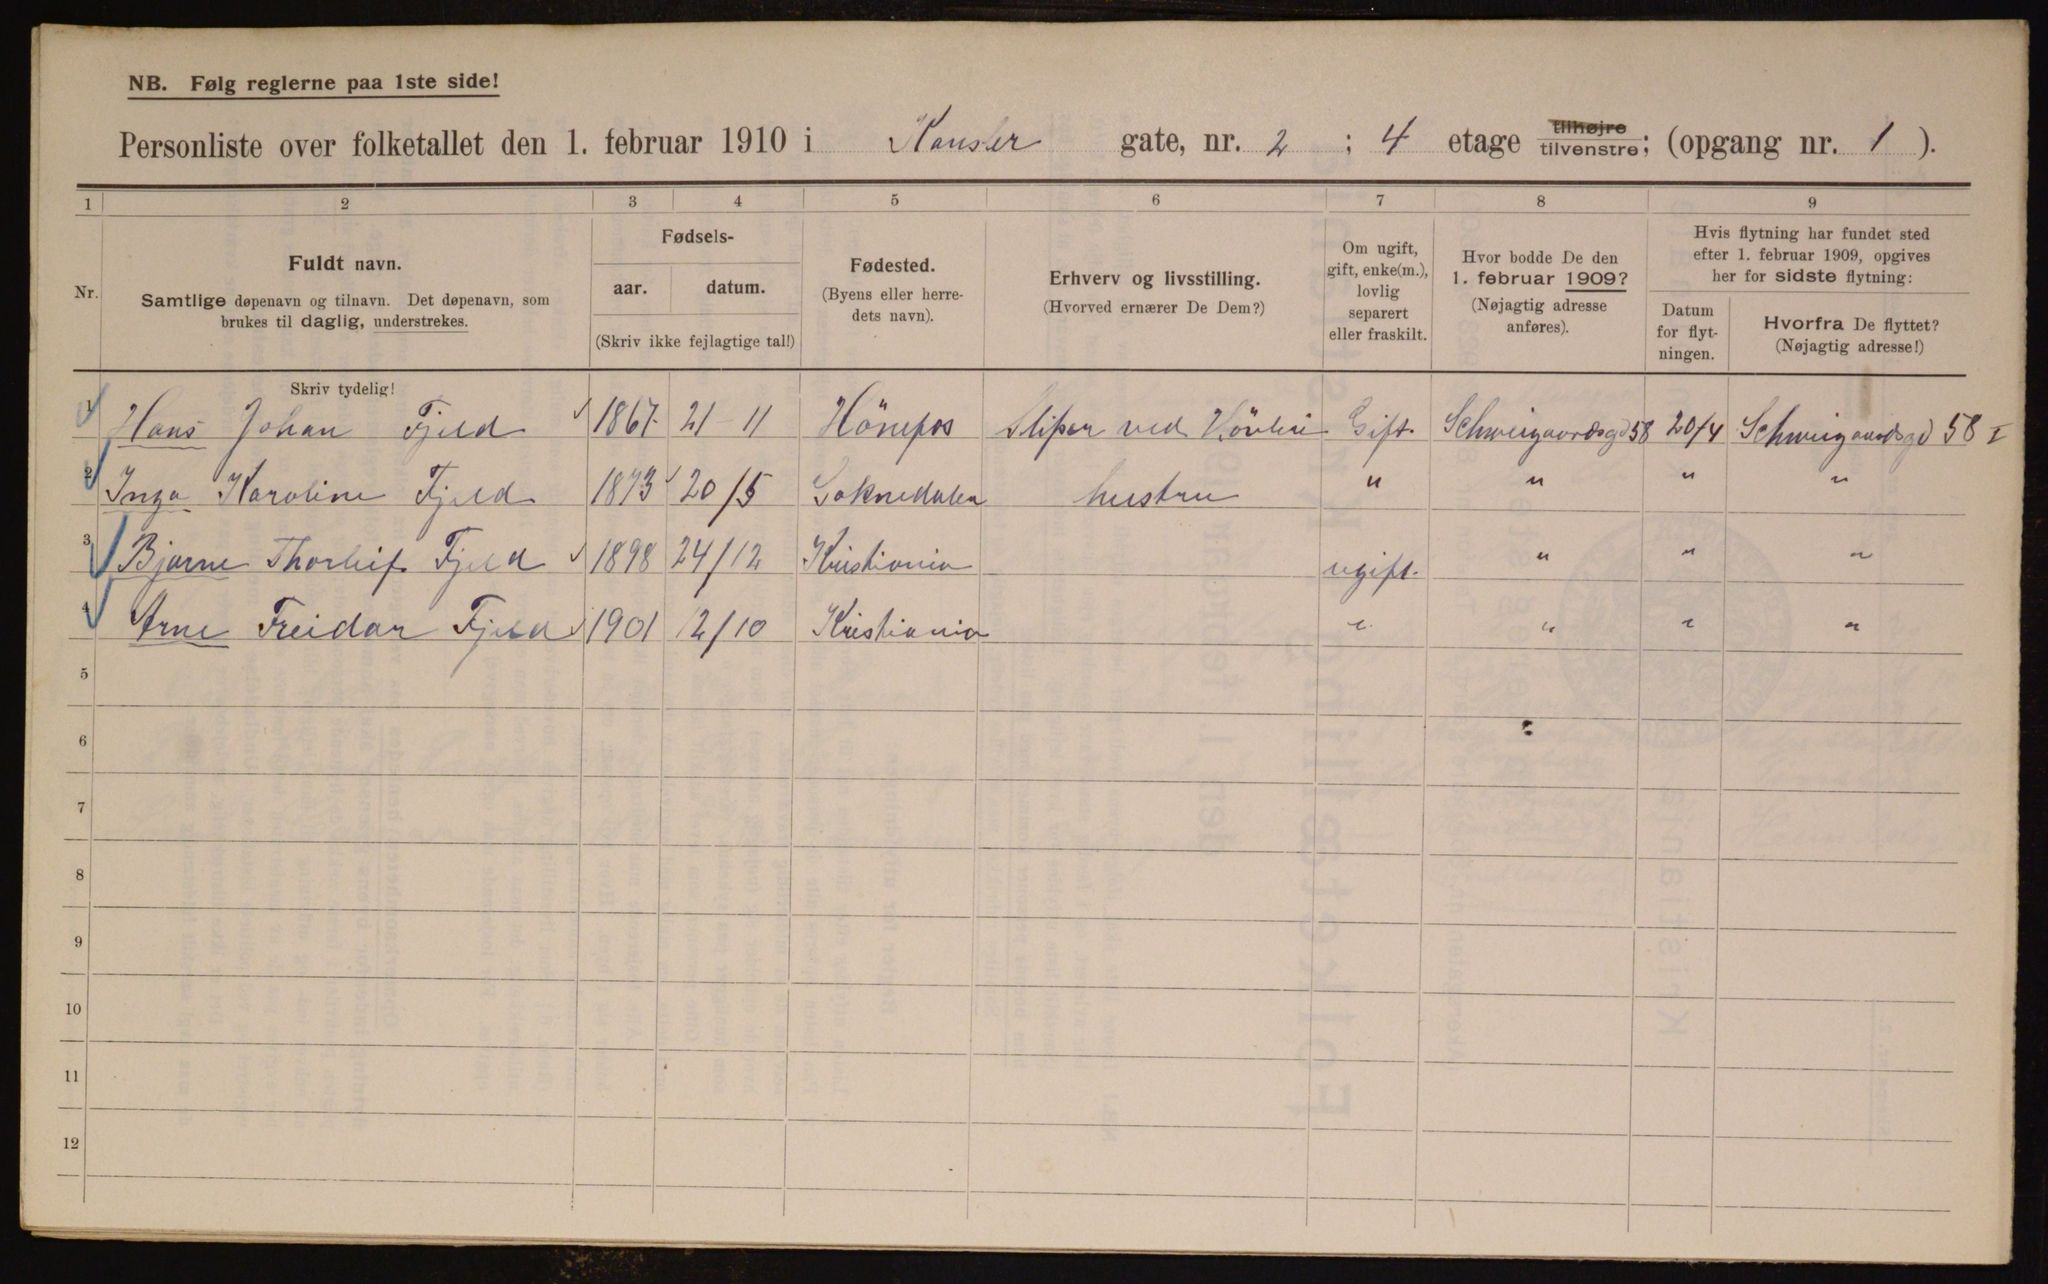 NB. Følg reglerne paa 1ste side!
Personliste over folketallet den 1. februar 1910 i Kansler gate, nr. 2 ; 4 etage tilhøjre tilvenstre; (opgang nr. 1 ).
1 2 3 4 5 6 7 8 9
Nr.
Fuldt navn.
Samtlige døpenavn og tilnavn. Det døpenavn, som
brukes til daglig, understrekes.
Skriv tydelig!
Fødsels-
aar. datum.
(Skriv ikke fejlagtige tal!)
Fødested.
(Byens eller herre-
dets navn).
Erhverv og livsstilling.
(Hvorved ernærer De Dem?)
Om ugift,
gift, enke(m.),
lovlig
separert
eller fraskilt.
Hvor bodde De den
1. februar 1909?
(Nøjagtig adresse
anføres).
Hvis flytning har fundet sted
efter 1. februar 1909, opgives
her for sidste flytning:
Datum
for flyt-
ningen.
Hvorfra De flyttet?
(Nøjagtig adresse!)
1 Hans Johan Fjeld 1867 21-11 Hönefos Sliper ved Gift. Schweigaardsgd 58 20/4 Schweigaardsgd 58 I
2 Inga Karoline Fjeld 1873 20/5 Soknedalen hustru " " " "
3 Bjarne Thorleif Fjeld 1898 24/12 Kristiania ugift. " " "
4 Arne Freidar Fjeld 1901 12/10 Kristiania " " " "
5
6
7
8
9
10
11
12